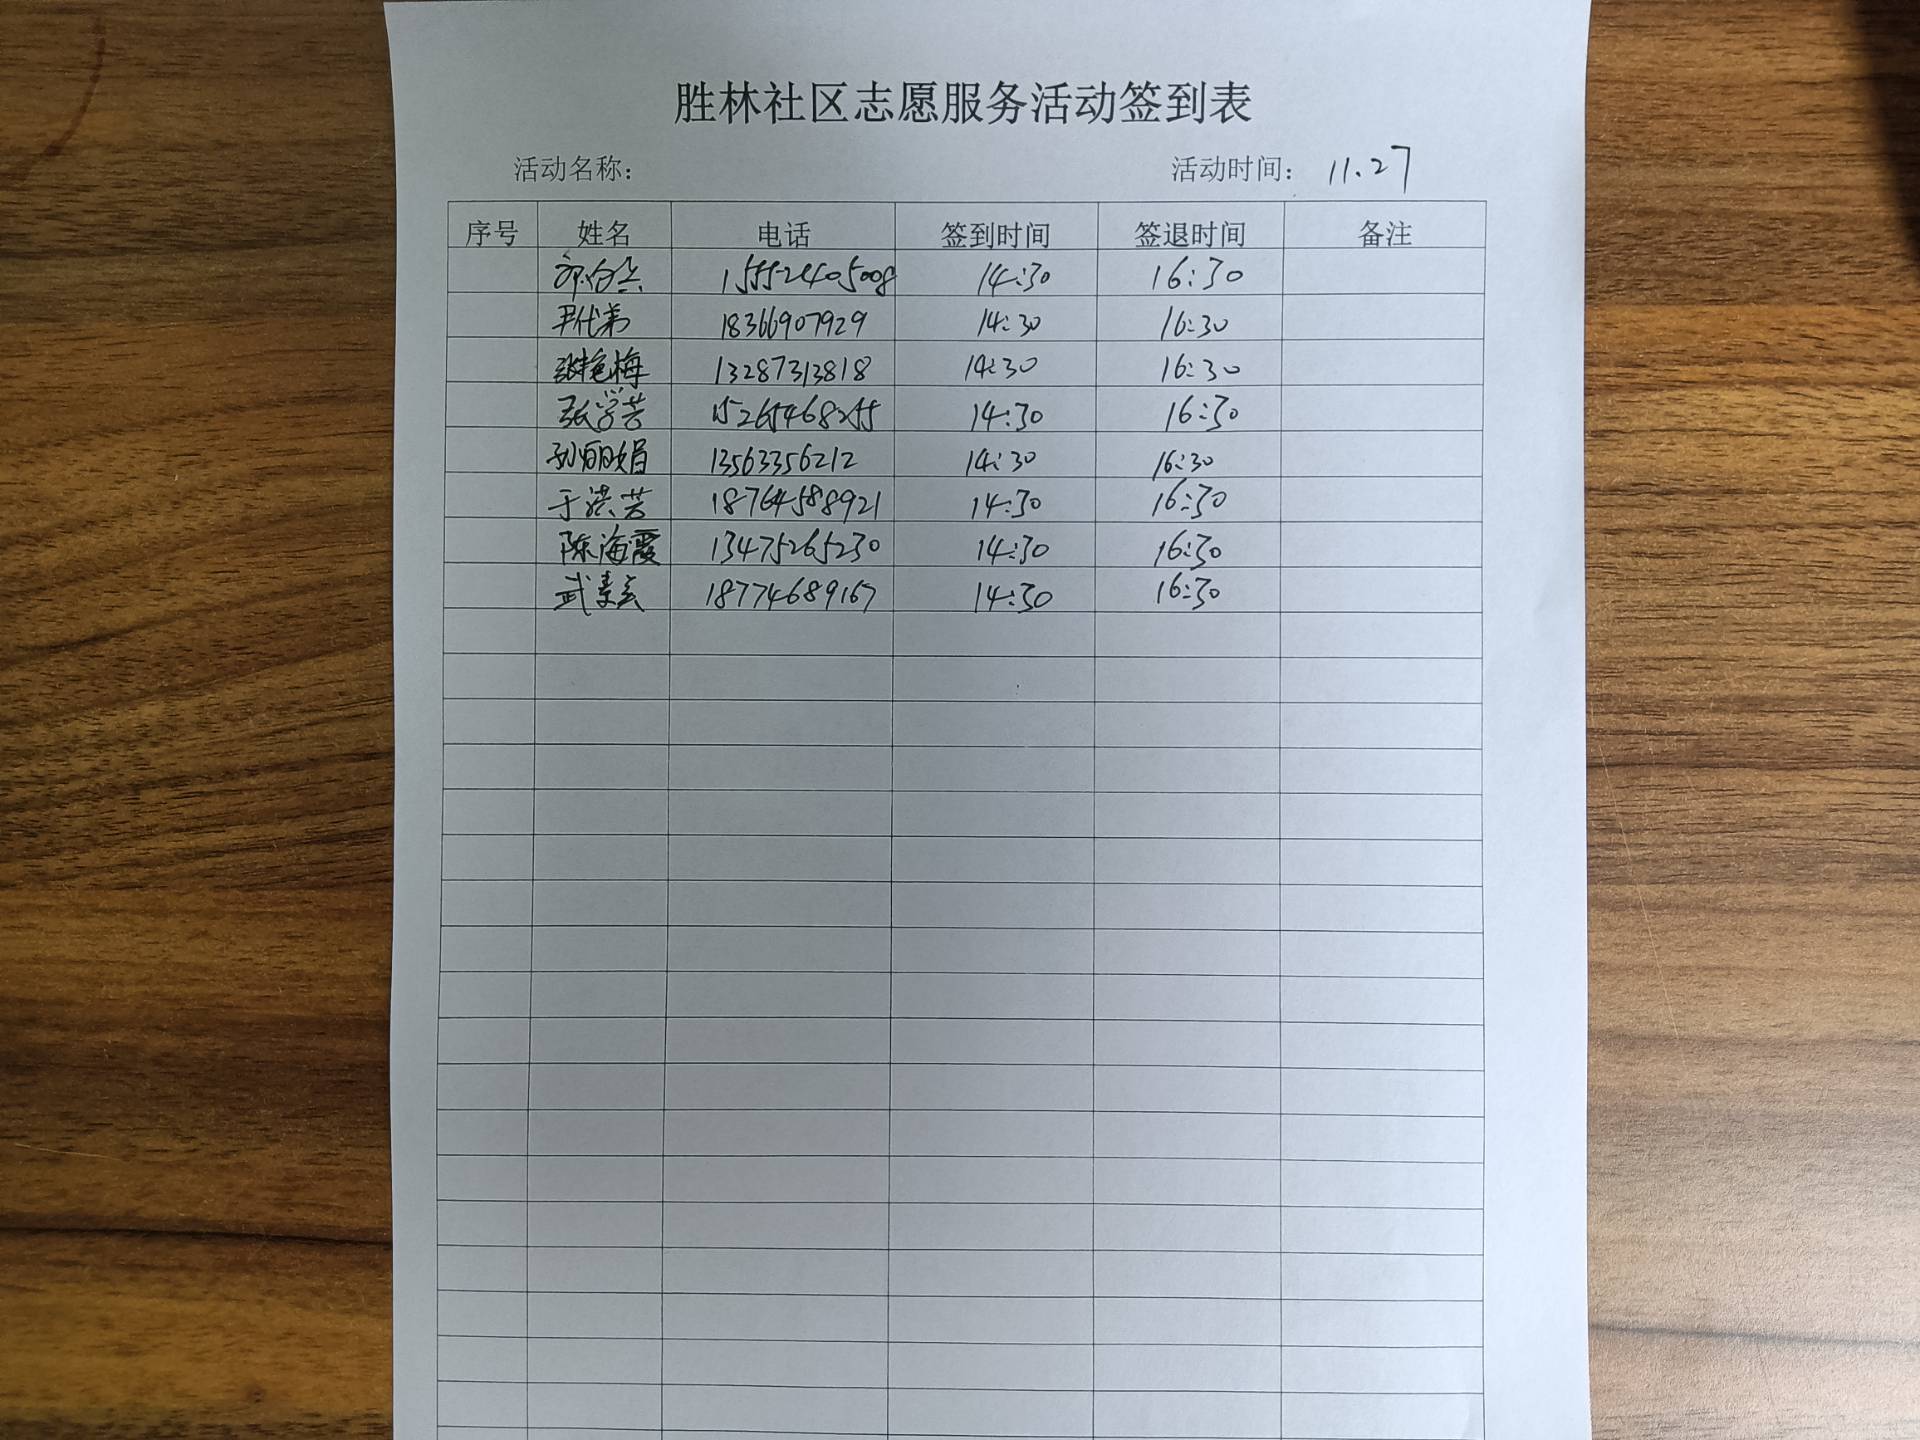 胜林社区志愿服务活动签到表
活动名称: 活动时间: 11.27
序号 姓名 电话 签到时间 签退时间 备注
15552405008 14:30 16:30
尹代弟 18366907929 14:30 16:30
张艳梅 13287313818 14:30 16:30
张学芳 15265468255 14:30 16:30
孙丽娟 13563356212 14:30 16:30
于洪芳 18764588921 14:30 16:30
陈海霞 13475265230 14:30 16:30
武素云 18774689167 14:30 16:30